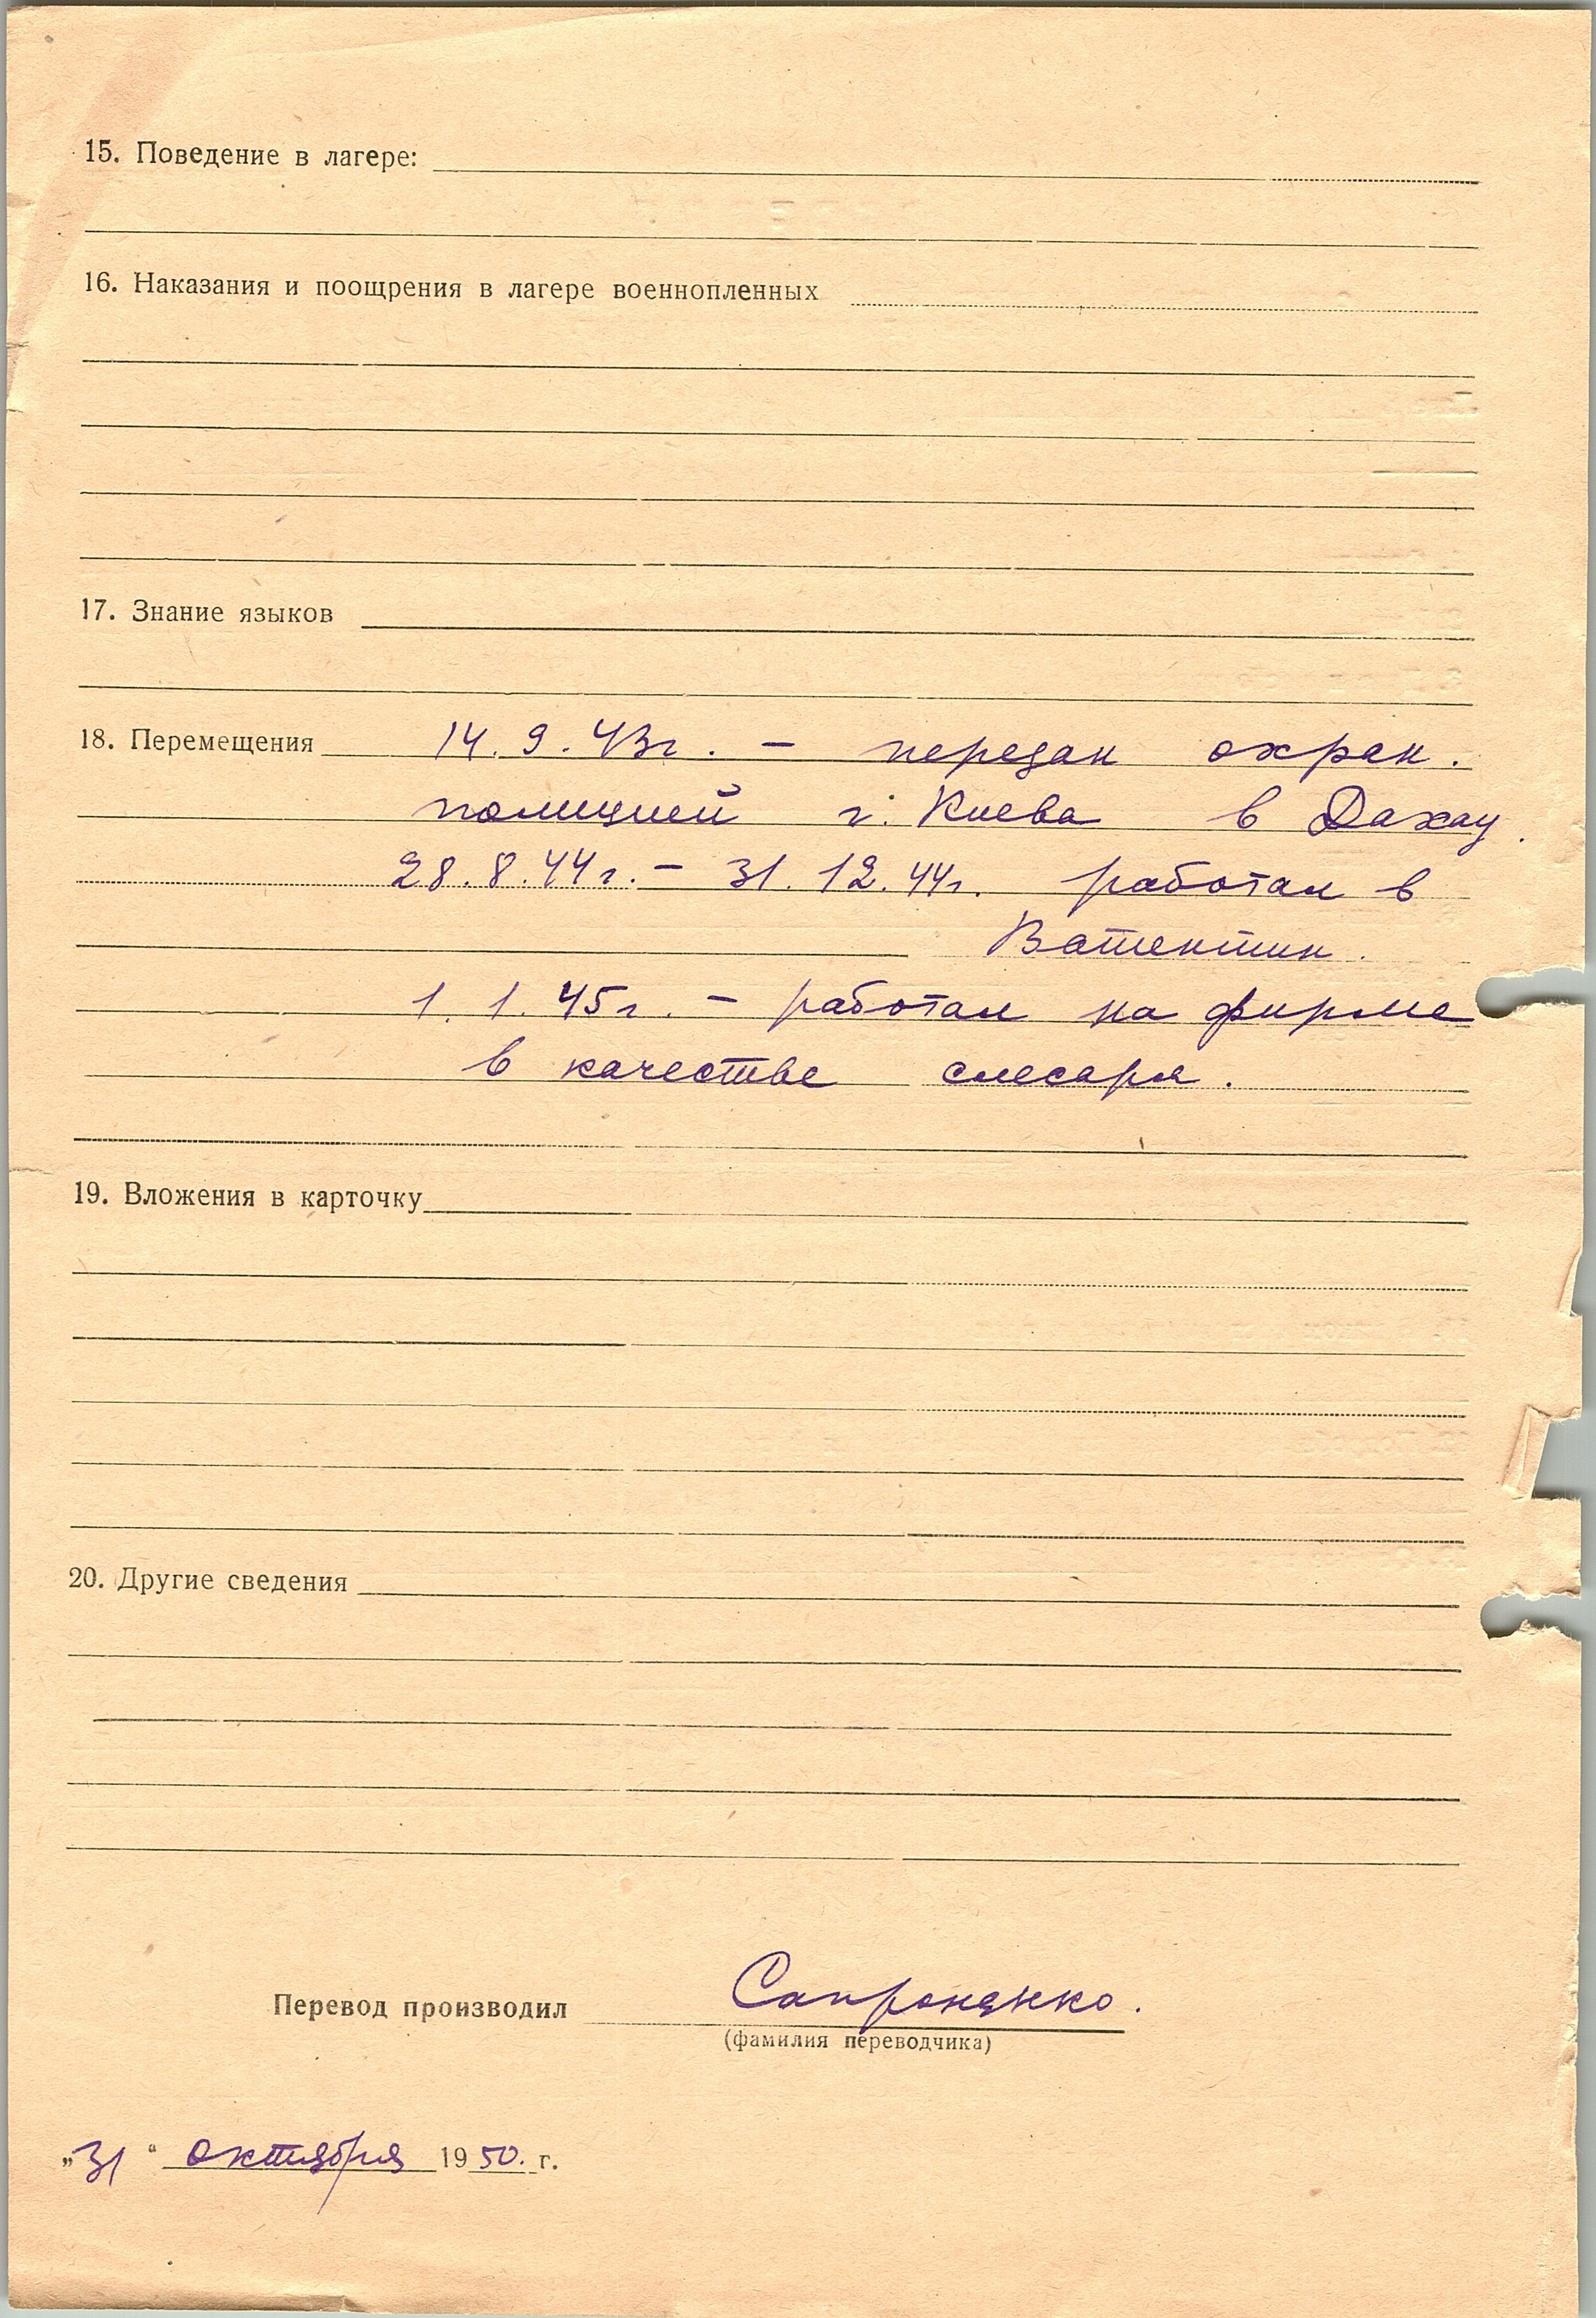 15. Поведение в лагере:
16. Наказания и поощрения в лагере военнопленных
17. Знание языков
18. Перемещения 14. 9. 43г. – передан охран.
полицией г. Киева в Дахау.
28. 8. 44г. – 31. 12. 44г. работал в
1. 1. 45г. – работал на фирме
в качестве слесаря.
19. Вложения в карточку
20. Другие сведения
Перевод производил
(фамилия переводчика)
„31“ октября 1950. г.